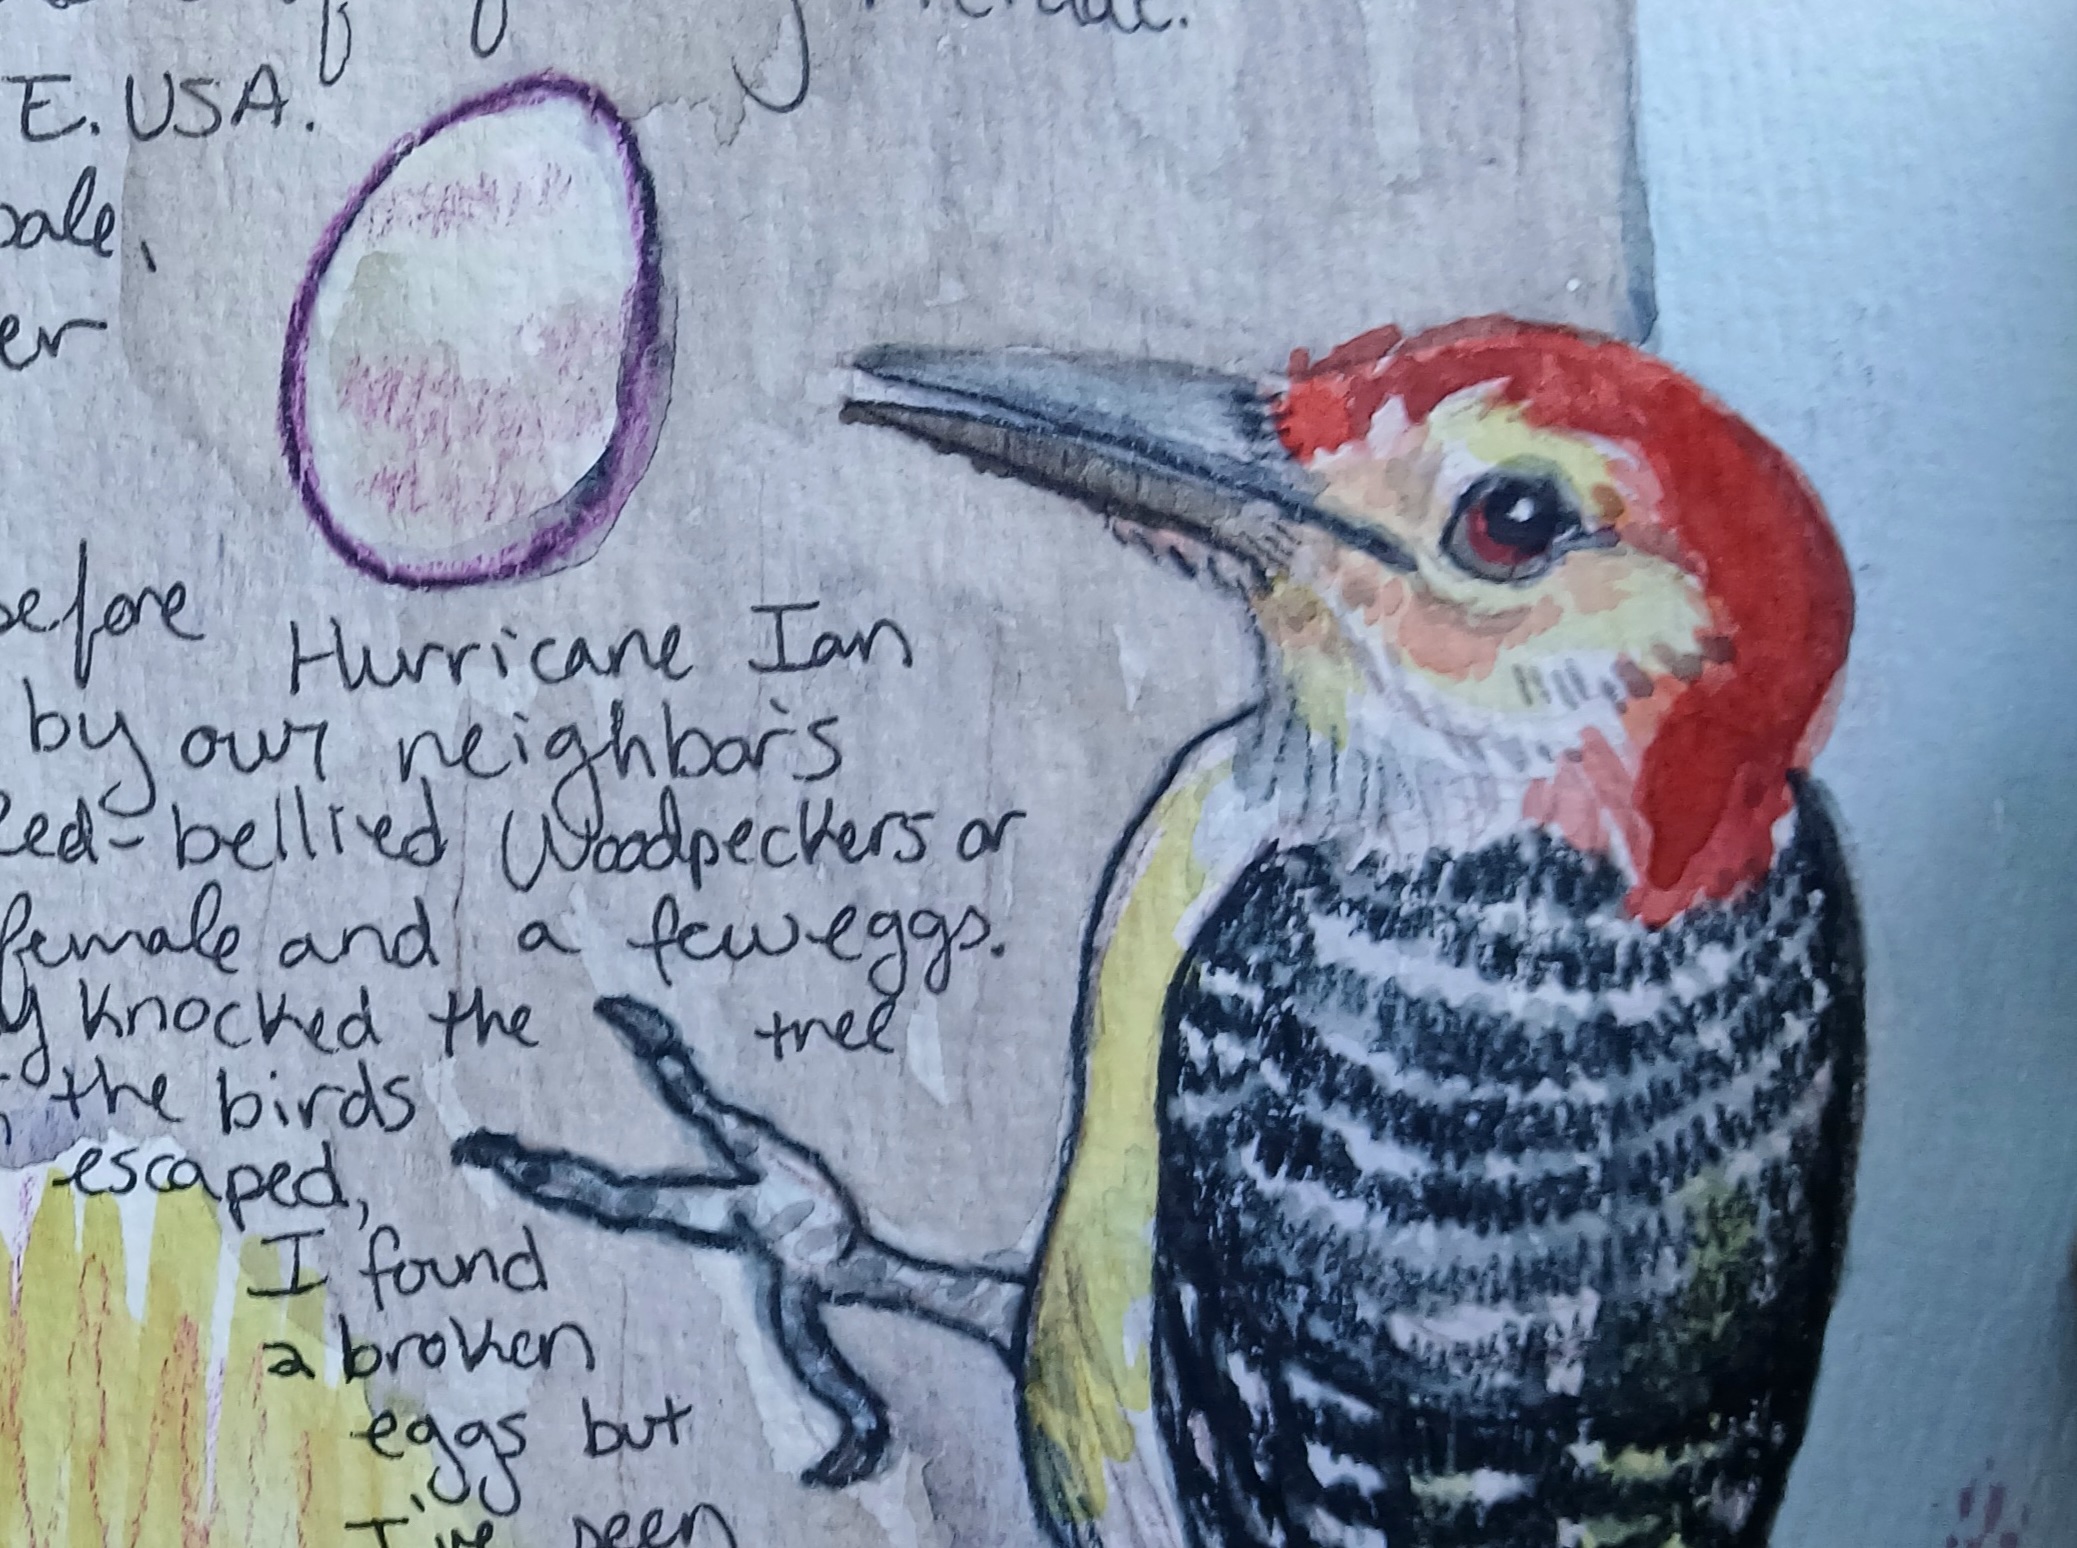 E. USA.
before Hurricane Ian
by our neighbor's
Red-bellied Woodpeckers or
female and a few eggs.
knocked the tree
the birds
escaped,
I found
a broken
eggs but
I've seen